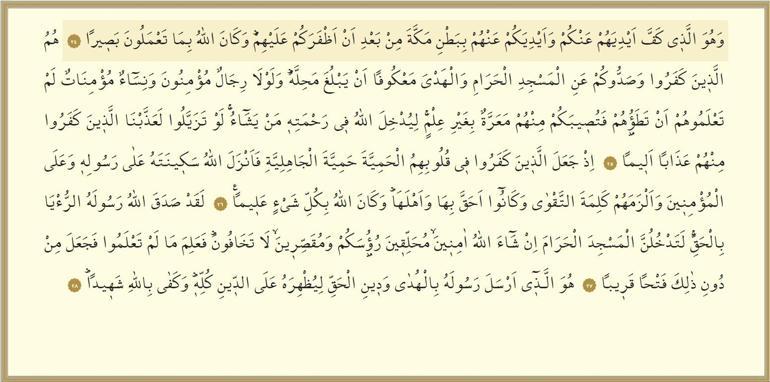 وَهُوَ الَّذ۪ي كَفَّ اَيْدِيَهُمْ عَنْكُمْ وَاَيْدِيَكُمْ عَنْهُمْ بِبَطْنِ مَكَّةَ مِنْ بَعْدِ اَنْ اَظْفَرَكُمْ عَلَيْهِمْۜ وَكَانَ اللّٰهُ بِمَا تَعْمَلُونَ بَص۪يرًا ﴿٢٤﴾ هُمُ
الَّذ۪ينَ كَفَرُوا وَصَدُّوكُمْ عَنِ الْمَسْجِدِ الْحَرَامِ وَالْهَدْيَ مَعْكُوفًا اَنْ يَبْلُغَ مَحِلَّهُۜ وَلَوْلَا رِجَالٌ مُؤْمِنُونَ وَنِسَٓاءٌ مُؤْمِنَاتٌ لَمْ
تَعْلَمُوهُمْ اَنْ تَطَؤُ۫هُمْ فَتُص۪يبَكُمْ مِنْهُمْ مَعَرَّةٌ بِغَيْرِ عِلْمٍۚ لِيُدْخِلَ اللّٰهُ ف۪ي رَحْمَتِه۪ مَنْ يَشَٓاءُۚ لَوْ تَزَيَّلُوا لَعَذَّبْنَا الَّذ۪ينَ كَفَرُوا
مِنْهُمْ عَذَابًا اَل۪يمًا ﴿٢٥﴾ اِذْ جَعَلَ الَّذ۪ينَ كَفَرُوا ف۪ي قُلُوبِهِمُ الْحَمِيَّةَ حَمِيَّةَ الْجَاهِلِيَّةِ فَاَنْزَلَ اللّٰهُ سَك۪ينَتَهُ عَلٰى رَسُولِه۪ وَعَلَى
الْمُؤْمِن۪ينَ وَاَلْزَمَهُمْ كَلِمَةَ التَّقْوٰى وَكَانُٓوا اَحَقَّ بِهَا وَاَهْلَهَاۜ وَكَانَ اللّٰهُ بِكُلِّ شَيْءٍ عَل۪يمًا۟ ﴿٢٦﴾ لَقَدْ صَدَقَ اللّٰهُ رَسُولَهُ الرُّءْيَا
بِالْحَقِّۚ لَتَدْخُلُنَّ الْمَسْجِدَ الْحَرَامَ اِنْ شَٓاءَ اللّٰهُ اٰمِن۪ينَۙ مُحَلِّق۪ينَ رُؤُ۫سَكُمْ وَمُقَصِّر۪ينَۙ لَا تَخَافُونَۜ فَعَلِمَ مَا لَمْ تَعْلَمُوا فَجَعَلَ مِنْ
دُونِ ذٰلِكَ فَتْحًا قَر۪يبًا ﴿٢٧﴾ هُوَ الَّذ۪ٓي اَرْسَلَ رَسُولَهُ بِالْهُدٰى وَد۪ينِ الْحَقِّ لِيُظْهِرَهُ عَلَى الدّ۪ينِ كُلِّه۪ۜ وَكَفٰى بِاللّٰهِ شَه۪يدًاۜ ﴿٢٨﴾